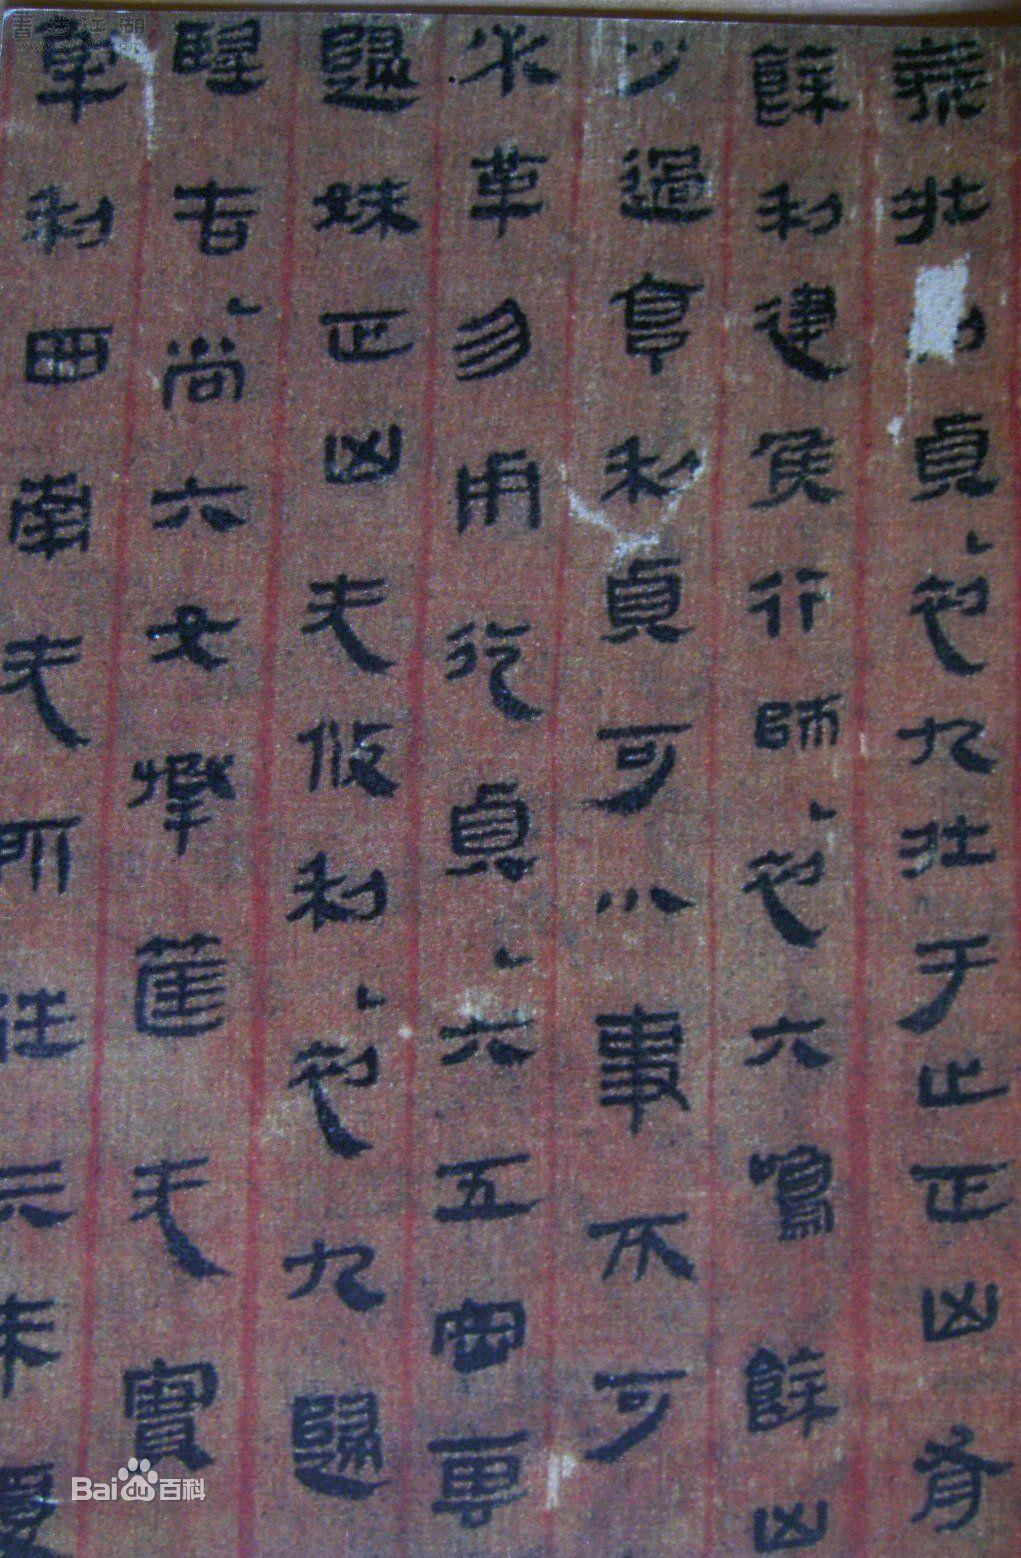 泰壯貞初九壯于止正凶有
餘利建侯行師初六鳴餘凶
少過亨利貞可小事不可
必革勿用永貞六五密雲
歸妹正凶无攸利初九歸
朢吉尚六女承筐无實
解利西南无所往亓來復
書法江湖
www.sf108.com
Bai百科